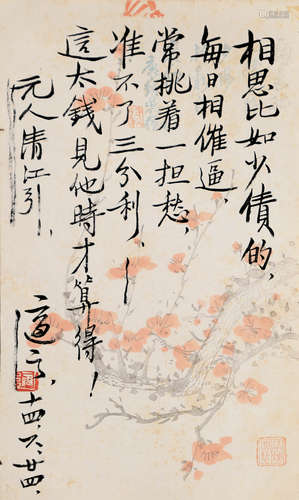 相思比如少債的，
每日相催逼，
常挑着一担愁，
准不了三分利、——
這本錢見他時才算得！
元人清江引、
適之、十四、六、廿四、